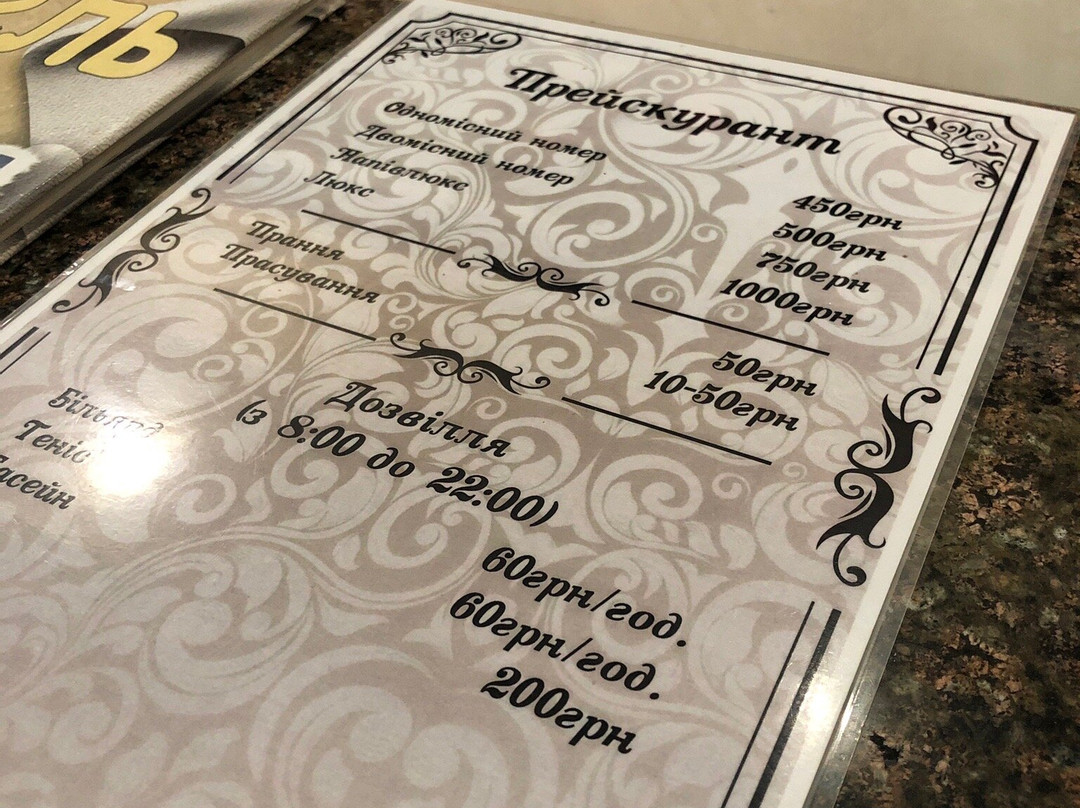 ЛЬ
Прейскурант
Одномісний номер 450грн
Двомісний номер 500грн
Напівлюкс 750грн
Люкс 1000грн
Прання 50грн
Прасування 10-50грн
Дозвілля
(з 8:00 до 22:00)
Більярд 60грн/год.
Теніс 60грн/год.
Басейн 200грн